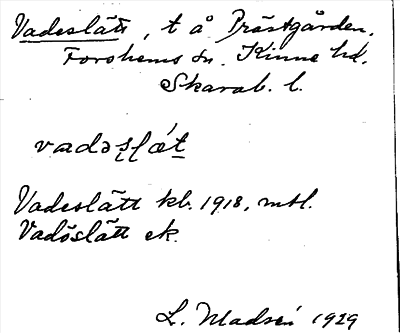 Vadeslätt, t å Prästgården,
Forshems sn. Kinne hd.
Skarab. l.
vadəslǽt
Vadeslätt kb. 1918, mtl.
Vadöslätt ek.
L. Madsén 1929